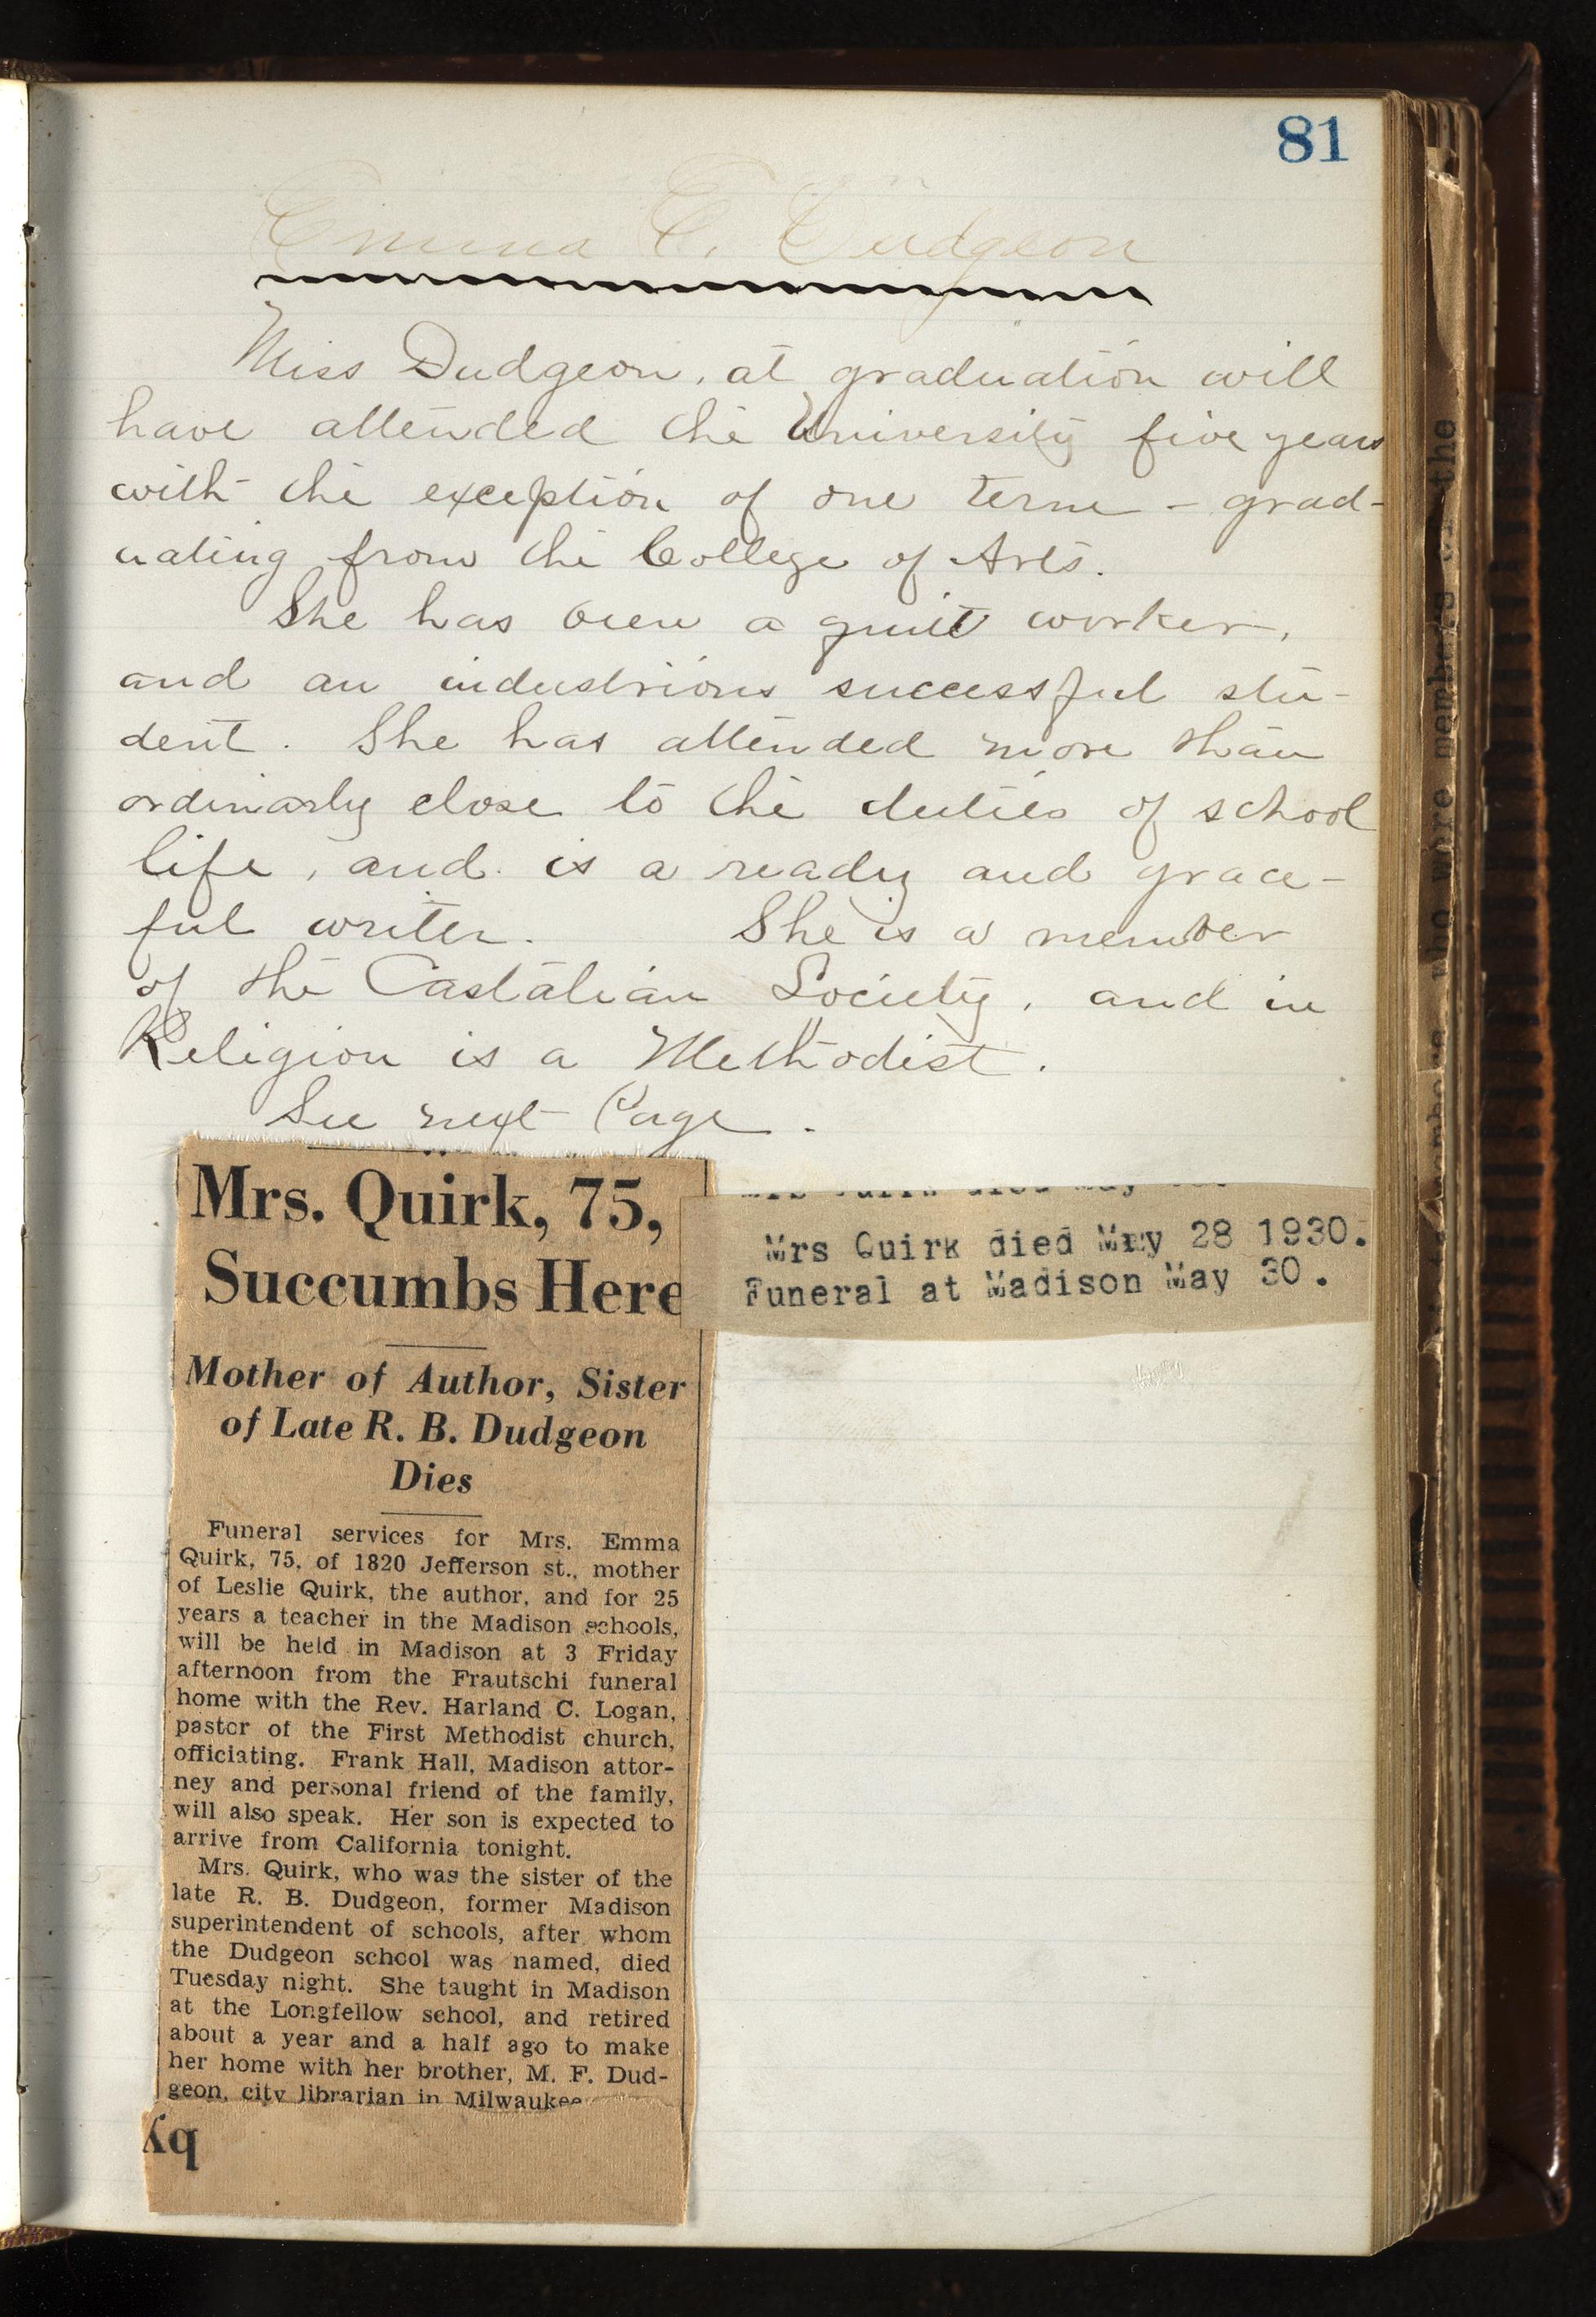 81
Emma E. Dudgeon
Miss Dudgeon, at graduation will
have attended the University five years
with the exception of one term – grad-
uating from the College of Arts.
She has been a quiet worker,
and an industrious successful stu-
dent. She has attended more than
ordinarly close to the duties of school
life, and is a ready and grace-
ful writer. She is a member
of the Castalian Society, and in
Religion is a Methodist.
See next Page.
Mrs. Quirk, 75,
Succumbs Here
Mother of Author, Sister
of Late R. B. Dudgeon
Dies
Funeral services for Mrs. Emma
Quirk, 75, of 1820 Jefferson st., mother
of Leslie Quirk, the author, and for 25
years a teacher in the Madison schools,
will be held in Madison at 3 Friday
afternoon from the Frautschi funeral
home with the Rev. Harland C. Logan,
pastor of the First Methodist church,
officiating. Frank Hall, Madison attor-
ney and personal friend of the family,
will also speak. Her son is expected to
arrive from California tonight.
Mrs. Quirk, who was the sister of the
late R. B. Dudgeon, former Madison
superintendent of schools, after whom
the Dudgeon school was named, died
Tuesday night. She taught in Madison
at the Longfellow school, and retired
about a year and a half ago to make
her home with her brother, M. F. Dud-
geon, city librarian in Milwaukee
by
Mrs Quirk died May 28 1930.
Funeral at Madison May 30.
who were members of the